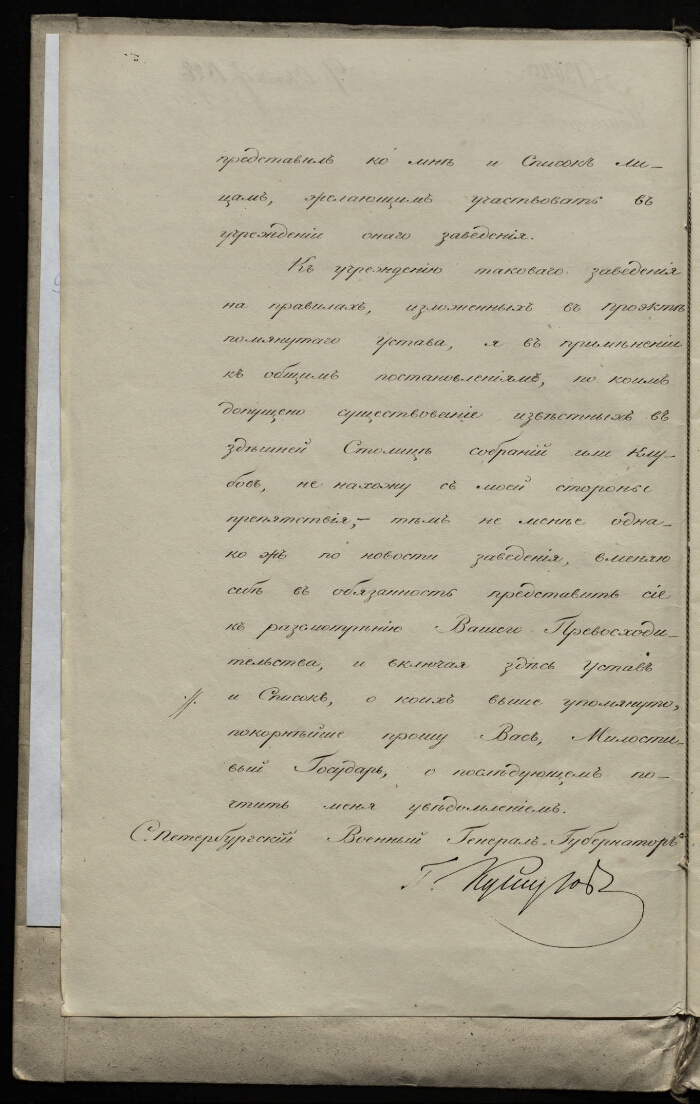 представилъ ко мнѣ и Списокъ ли-
цамъ, желающимъ участвовать въ
учрежденіи онаго заведенія.
Къ учрежденію таковаго заведенія
на правилахъ, изложенныхъ въ проэктѣ
помянутаго Устава, я въ примѣненіи
къ общимъ постановленіямъ, по коимъ
допущено существованіе извѣстныхъ въ
здѣшней Столицѣ собраній или Клу-
бовъ, не нахожу съ моей стороны
препятствія; — тѣмъ не менѣе одна-
ко жъ по новости заведенія, вменяю
себѣ въ обязанность представить сіе
къ разсмотрѣнію Вашего Превосходи-
тельства, и включая здѣсь Уставъ
и Списокъ, о коихъ выше упомянуто,
покорнѣйше прошу Васъ, Милости-
вый Государь, о послѣдующемъ по-
чтить меня увѣдомленіемъ.
С. Петербургскій Военный Генералъ-Губернаторъ